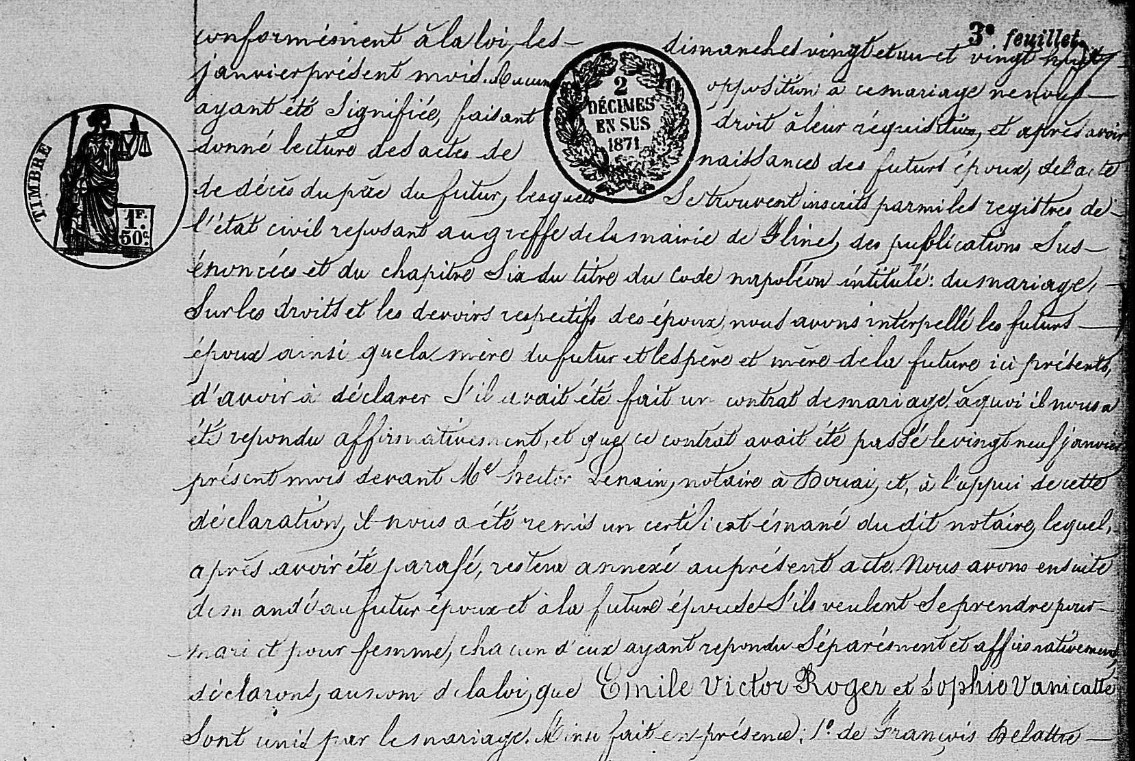 3e feuillet.
conformément à la loi, les dimanches vingt et un et vingt huit
janvier présent mois. Aucune opposition à ce mariage ne nous
ayant été signifiée, faisant droit à leur réquisition, et après avoir
donné lecture des actes de naissances des futurs époux, de l'acte
de décès du père du futur, lesquels se trouvent inscrits parmi les registres de
l'état civil reposant au greffe de la mairie de Flines, des publications sus
énoncées et du chapitre six du titre du Code napoléon intitulé : du mariage,
sur les droits et les devoirs respectifs des époux, nous avons interpellé les futurs
époux ainsi que la mère du futur et les père et mère de la future ici présents,
d'avoir à déclarer s'il avait été fait un contrat de mariage, à quoi il nous a
été repondu affirmativement, et que ce contrat avait été passé le vingt neuf janvier
présent mois devant Me Hector Lenain, notaire à Douai, et, à l'appui de cette
déclaration, il nous a été remis un certificat émané du dit notaire, lequel,
après avoir été parafé, restera annexé au présent acte. Nous avons ensuite
demandé au futur époux et à la future épouse s'ils veulent se prendre pour
mari et pour femme, chacun d'eux ayant repondu séparément et affirmativement,
déclarons, au nom de la loi, que Emile Victor Roger et Sophie Vanicatte
sont unis par le mariage. Ainsi fait en présence : 1o de François Delattre
TIMBRE
1F.
50c.
2
DÉCIMES
EN SUS
1871